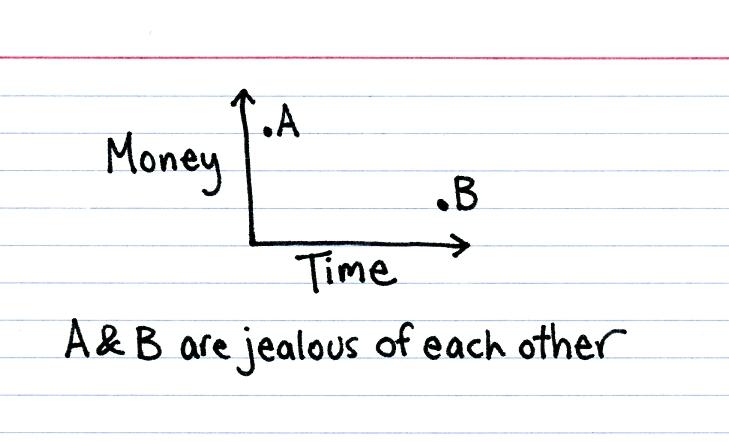 .A
Money
.B
Time
A & B are jealous of each other